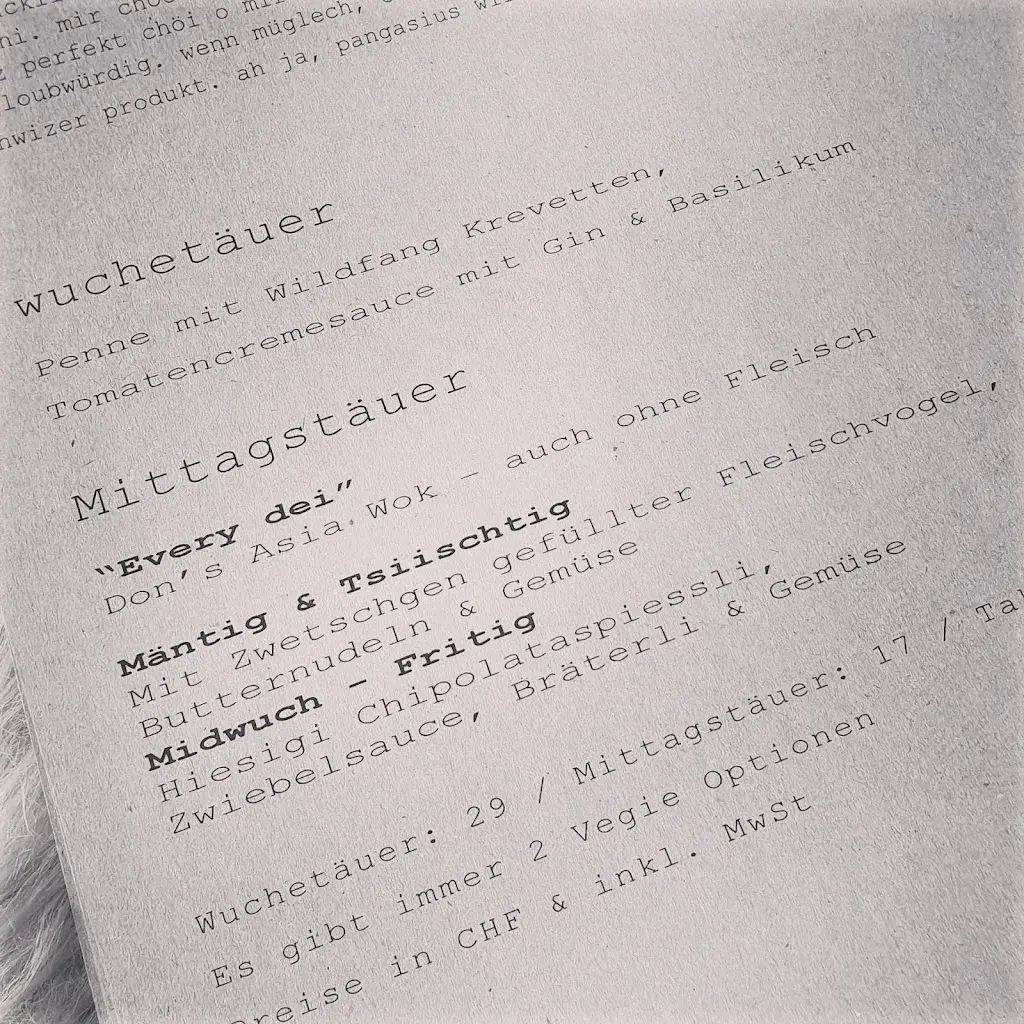 ni. mir
perfekt chöi o
loubwürdig. wenn müglech,
produkt. ah ja, pangasius
wuchetäuer
Penne mit Wildfang Krevetten,
Tomatencremesauce mit Gin & Basilikum
Mittagstäuer
“Every dei”
Don's Asia Wok – auch ohne Fleisch
Mäntig & Tsiischtig
Mit Zwetschgen gefüllter Fleischvogel,
Butternudeln & Gemüse
Midwuch – Fritig
Hiesigi Chipolataspiessli,
Zwiebelsauce, Bräterli & Gemüse
Wuchetäuer: 29 / Mittagstäuer: 17 /
Es gibt immer 2 Vegie Optionen
Preise in CHF & inkl. MwSt